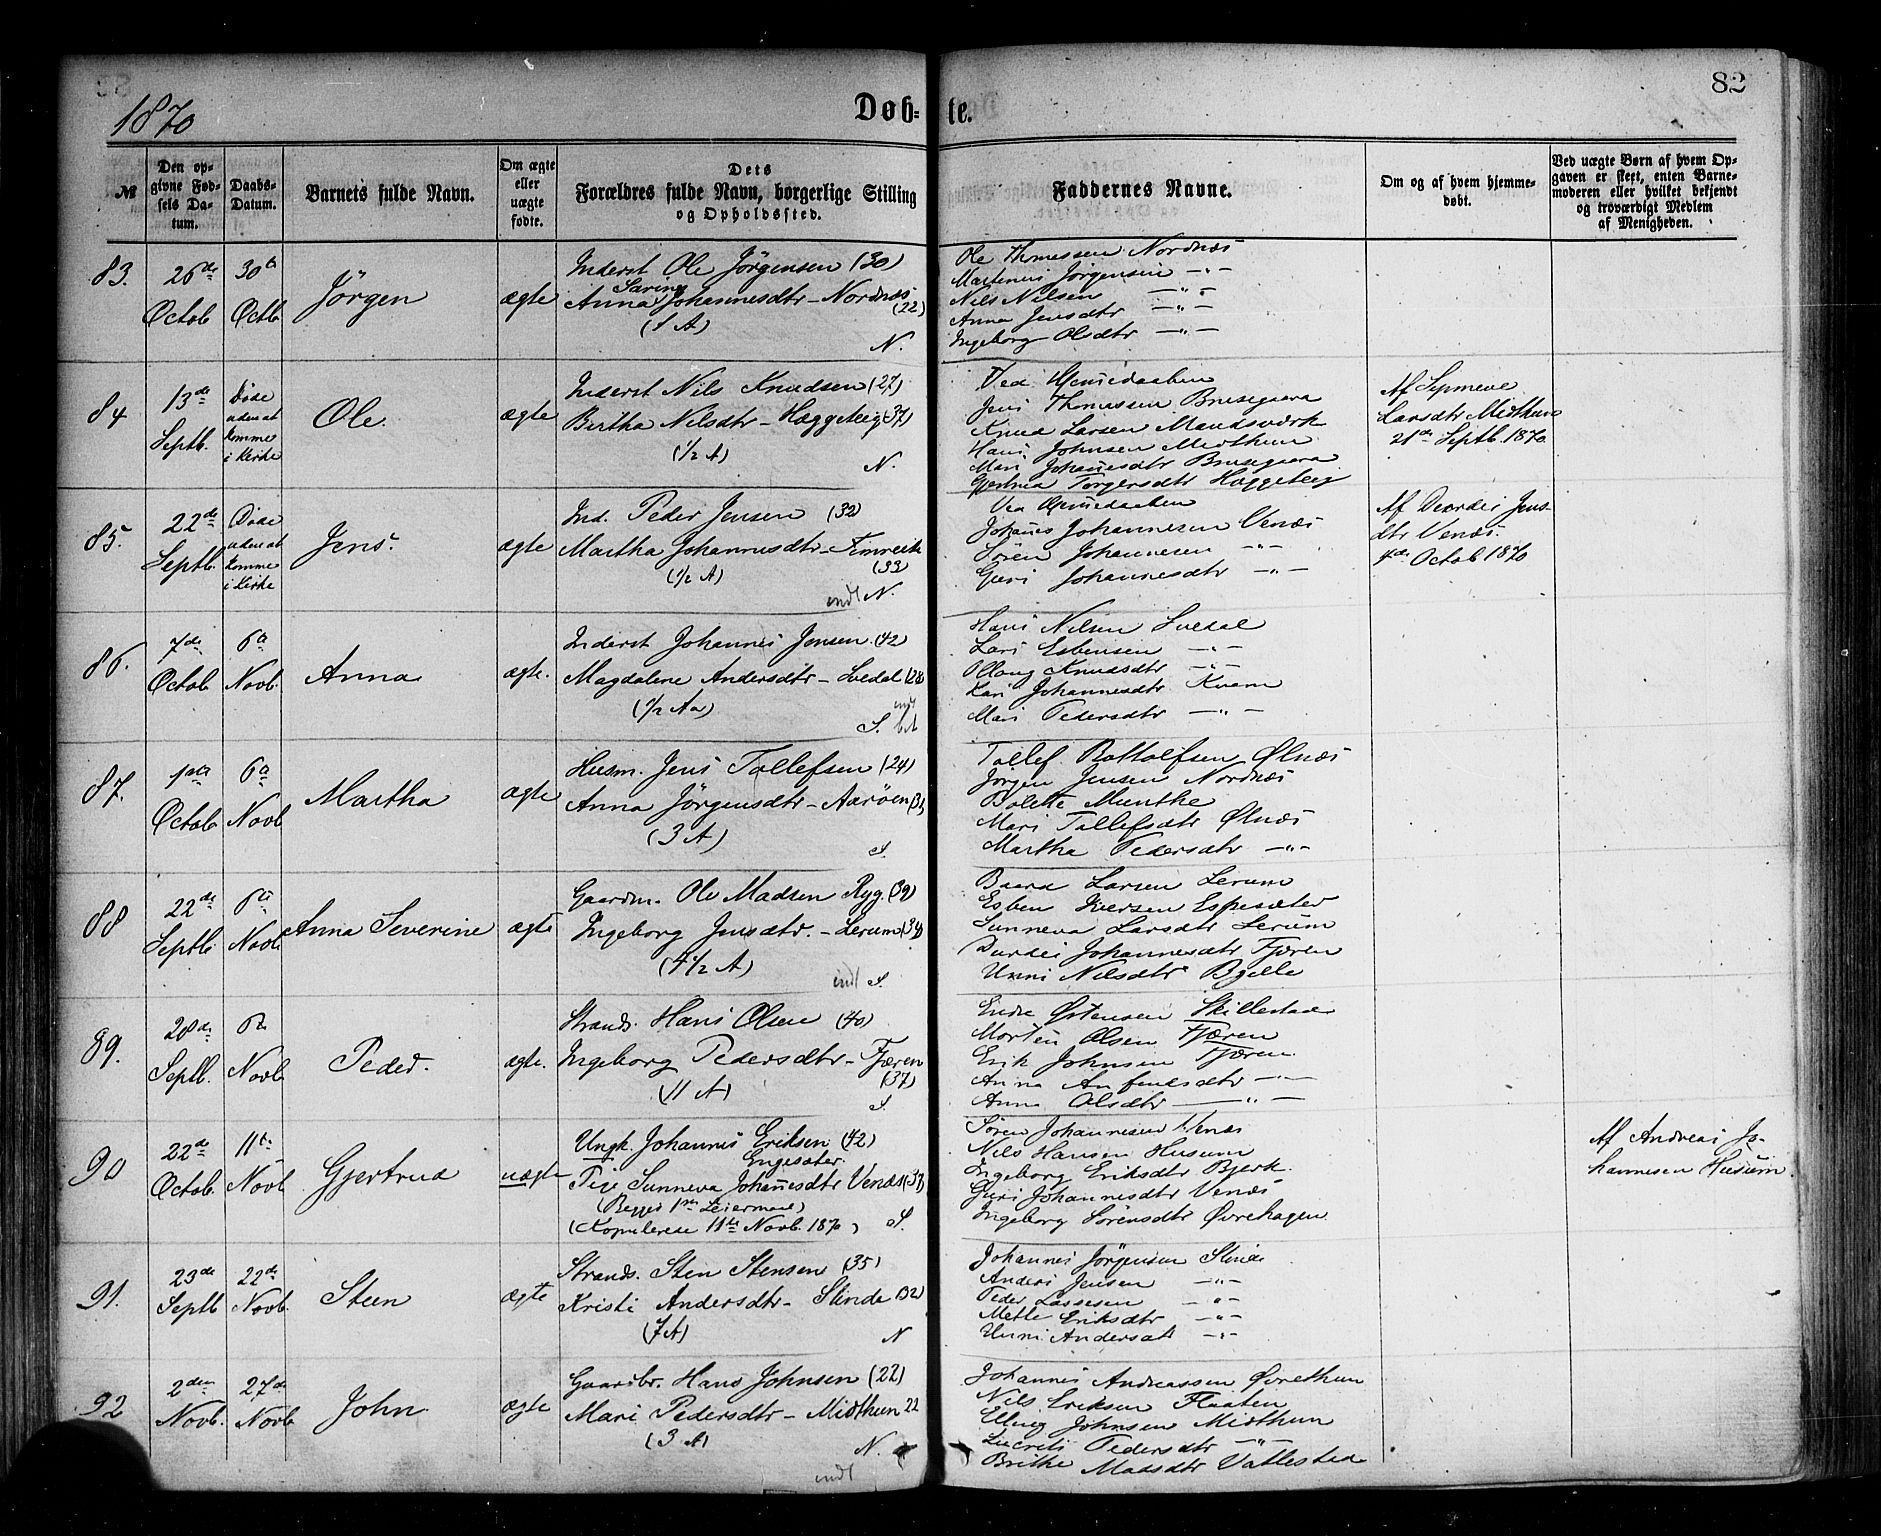 82
1870
Døb-te.
№
Den opgivne Fødsels Datum.
Daabs-Datum.
Barnets fulde Navn.
Om ægte eller uægte fødte.
Dets Forældres fulde Navn, borgerlige Stilling og Opholdssted.
Faddernes Navne.
Om og af hvem hjemmedøbt.
Ved uægte Børn af hvem Opgaven er skeet, enten Barnemoderen eller hvilket bekjendt og troværdigt Medlem af Menigheden.
83.
26de Octob
30te Octb
Jörgen
ægte
Inderst Ole Jörgensen (30)
Anna Sarine Johannesdtr - Nordnæs (22)
(1 A)
N.
Ole Thomessen Nordnæs
Martinus Jörgensen —"—
Nils Nilsen —"—
Anna Jensdtr —"—
Ingeborg Olsdtr —"—
84
13de Septb.
Døde uden at komme i Kirke
Ole.
ægte
Inderst Nils Knudsen (27)
Bertha Nilsdtr - Hæggeleig (37)
(1/2 A)
N.
Ved Hjemmedaaben
Jens Thomassen Brusegaard
Knud Larsen Mundsværk
Hans Johnsen Midthun
Mari Johannesdtr Brusegaard
Torgersdtr Hæggeleig
Af
Larsdtr Midthun
21de Septb. 1870
85.
22de Septb.
Døde uden at komme i Kirke
Jens.
ægte
Ind. Peder Jensen (32)
Martha Johannesdtr - Fimreite (33)
(1/2 A)
indl N.
Ved Hjemmedaaben
Johannes Johannesen Venæs
Sören Johannesen —"—
Guri Johannesdtr —"—
Af Deordei Jens-
dtr Venæs.
4de Octob 1870
86.
7de Octob
6te Novb.
Anna
ægte.
Inderst Johannes Jensen (42
Magdalene Andersdtr - Svedal (28)
(1/2 Aa)
indl
S.
Hans Nilsen Svedal
Lars Esbensen —"—
Knudsdtr —"—
Kari Johannesdtr Kvam
Mari Pedersdtr —"—
87.
1ste Octob
6te Novb
Martha
ægte
Husm. Jens Tollefsen (24)
Anna Jörgensdtr - Aaröen
(3 A)
S.
Tollef Bottolfsen Ølnæs
Jörgen Jensen Nordnæs
Bolette Munthe
Mari Tollefsdtr Ølnæs
Martha Pedersdtr —"—
88
22de Septb
6te Novb
Anna Severine
ægte
Gaardm. Ole Madsen Ryg. (39)
Ingeborg Jensdtr. - Lerum (34)
(4 1/2 A)
indl S.
Baard Larsen Lerum
Esben Iversen Espesæter
Sunneva Larsdtr Lerum
Durdei Johannesdtr Fjæren
Unni Nilsdtr Bjelle
89.
28de Septb.
6te Novb
Peder.
ægte.
Strands. Hans Olsen (40)
Ingeborg Pedersdtr - Fjæren (37)
(11 A)
S.
Endre Østensen Skillestad
Morten Olsen Fjæren
Erik Johnsen Fjæren
Anna Anfinsdtr —"—
Anna Olsdtr —"—
90
22de Octob.
11te Novb
Gjertrud
uægte
Ungk. Johannes Eriksen (42)
Engesæter
Pige Sunneva Johannesdtr Venæs (37)
(Begges 1ste Leiermaal)
(Kopulerede 11te Novb. 1870)
S.
Sören Johannesen Venæs
Nils Hansen Husum
Ingeborg Eriksdtr Bjerk
Guri Johannesdtr Venæs
Ingeborg Sörensdtr Øvrehagen
Af Andreas Jo-
hannesen Husum
91.
23de Septb
22de Novb.
Steen
ægte
Strands. Sten Stensen (35)
Kristi Andersdtr - Slinde (32)
(7 A)
N
Johannes Jörgensen Slinde
Anders Jensen —"—
Peder Lassesen —"—
Mette Eriksdtr —"—
Unni Andersdt —"—
92
2den Novb.
27de Novb
John
ægte
Gaardbr. Hans Johnsen (22)
Mari Pedersdtr - Midthun 22
(3 A)
N.
indl
Johannes Andreassen Øvrethun
Nils Eriksen Flaaten
Elling Johnsen Midthun
Lucreti Pedersdtr —"—
Brithe Madsdtr Vatlestad